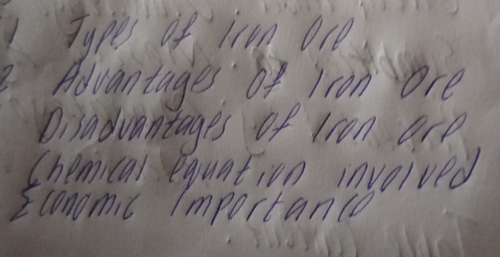 1 Types of Iron Ore
2 Advantages of Iron Ore
Disadvantages of Iron Ore
Chemical equation involved
Economic Importance